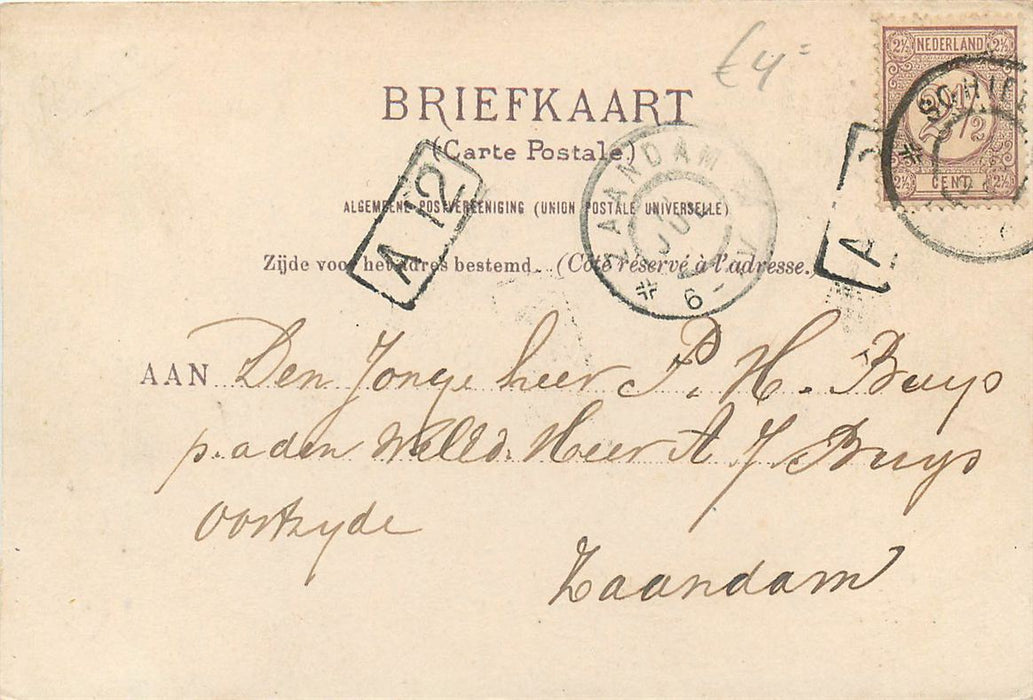 €4=
2½ NEDERLAND 2½
2½
2½ CENT 2½
BRIEFKAART
(Carte Postale.)
ALGEMEENE POSTVEREENIGING (UNION POSTALE UNIVERSELLE)
Zijde voor het adres bestemd. (Côté réservé à l'adresse.)
A 12
ZAANDAM
JUL
6-
A
AAN Den Jonge heer P. H. Buys
p. a den WelEd. Heer A J Buys
Oostzyde
Zaandam